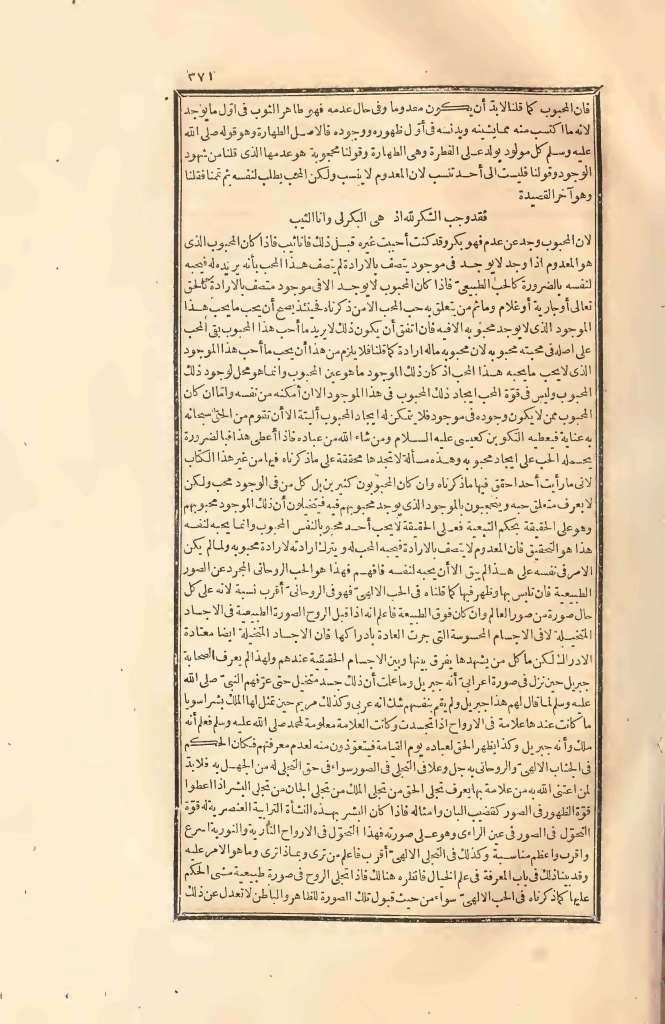 ٣٧١
فان المحبوب كما قلنا لابد أن يكون معدوما وفى حال عدمه فهو طاهر الثوب فى اول ما يوجد
لانه ما اكتسب منه مما يشينه ويدنسه فى أول ظهوره ووجوده فالاصل الطهارة وهو قوله صلى الله
عليه وسلم كل مولود يولد على الفطرة وهى الطهارة وقولنا محجوبة هو عدمها الذى قلنا من شهود
الوجود وقولنا فليست الى أحد تنسب لان المعدوم لا ينسب ولكن المحب يطلب لنفسه ثم تممنا فقلنا
وهو آخر القصيدة
فقد وجب الشكر لله اذ هى البكر لى وانا الثيب
لان المحبوب وجد عن عدم فهو بكر وقد كنت أحببت غيره قبل ذلك فانا ثيب فاذا كان المحبوب الذى
هو المعدوم اذا وجد لا يوجد فى موجود يتصف بالارادة لم يتصف هذا المحب بأنه يريد ما يريده له فيحبه
لنفسه بالضرورة كالحب الطبيعى فاذا كان المحبوب لا يوجد الا فى موجود متصف بالارادة كالحق
تعالى أو جارية أو غلام وما ثم من يتعلق به حب المحب الا من ذكرناه فحينئذ يصح أن يحب ما يحب هذا
الموجود الذى لا يوجد محبوبه الا فيه فان اتفق أن يكون ذلك لا يريد ما أحب هذا المحبوب بقى المحب
على اصله فى محبته محبوبه لان محبوبه ماله ارادة كما قلنا فلا يلزم من هذا أن يحب ما أحب هذا الموجود
الذى لا يحب ما يحبه هذا المحب اذ كان ذلك الموجود ما هو عين المحبوب وانما هو محل لوجود ذلك
المحبوب وليس فى قوة المحب ايجاد ذلك المحبوب فى هذا الموجود الا ان أمكنه من نفسه واما ان كان
المحبوب ممن لا يكون وجوده فى موجود فلا يتمكن له ايجاد المحبوب البتة الا أن تقوم من الحق سبحانه
به عناية فيعطيه التكوين كعيسى عليه السلام ومن شاء الله من عباده فاذا أعطى هذا فبالضرورة
يحمله الحب على ايجاد محبوبه وهذه مسألة لا تجدها محققة على ما ذكرناه فيها من غير هذا الكتاب
لانى ما رأيت أحدا حقق فيها ما ذكرناه وان كان المحبون كثيرين بل كل من فى الوجود محب ولكن
لا يعرف متعلق حبه وينحجبون بالموجود الذى يوجد محبوبهم فيه فيتخيلون أن ذلك الموجود محبوبهم
وهو على الحقيقة بحكم التبعية فعلى الحقيقة لا يحب أحد محبوبا لنفس المحبوب وانما يحبه لنفسه
هذا هو التحقيق فان المعدوم لا يتصف بالارادة فيحبه المحب له ويترك ارادته لارادة محبوبه ولما لم يكن
الامر فى نفسه على هذا لم يبق الا أن يحبه لنفسه فافهم فهذا هو الحب الروحانى المجرد عن الصور
الطبيعية فان تلبس بها وظهر فيها كما قلناه فى الحب الالهى فهو فى الروحانى أقرب نسبة لانه على كل
حال صورة من صور العالم وان كان فوق الطبيعة فاعلم انه اذا قبل الروح الصورة الطبيعية فى الاجساد
المتخيلة لا فى الاجسام المحسوسة التى جرت العادة بادراكها فان الاجساد المتخيلة ايضا معتادة
الادراك لكن ما كل من يشهدها يفرق بينها وبين الاجسام الحقيقية عندهم ولهذا لم يعرف الصحابة
جبريل حين نزل فى صورة اعرابى أنه جبريل وما علمت أن ذلك جسد متخيل حتى عرفهم النبى صلى الله
عليه وسلم لما قال لهم هذا جبريل ولم يقم بنفسهم شك انه عربى وكذلك مريم حين تمثل لها الملك بشرا سويا
ما كانت عندها علامة فى الارواح اذا تجسدت وكانت العلامة معلومة لمحمد صلى الله عليه وسلم فعلم أنه
ملك وأنه جبريل وكذا يظهر الحق لعباده يوم القيامة فيتعوذون منه لعدم معرفتهم فكان الحكم
فى الجناب الالهى والروحانى به جل وعلا فى التجلى فى الصور سواء فى حق المتجلى له من الجهل به فلا بد
لمن اعتنى الله به من علامة بها يعرف تجلى الحق من تجلى الملك من تجلى الجان من تجلى البشر اذا اعطوا
قوة الظهور فى الصور كقضيب البان وامثاله فاذا كان البشر بهذه النشأة الترابية العنصرية له قوة
التحول فى الصور فى عين الراءى وهو على صورته فهذا التحول فى الارواح النارية والنورية اسرع
واقرب واعظم مناسبة وكذلك فى التجلى الالهى أقرب فاعلم من ترى وبماذا ترى وما هو الامر عليه
وقد بينا ذلك فى باب المعرفة فى علم الخيال فانظره هنالك فاذا تجلى الروح فى صورة طبيعية مشى الحكم
عليها كما ذكرناه فى الحب الالهى سواء من حيث قبول تلك الصورة للظاهر والباطن لا تعدل عن ذلك